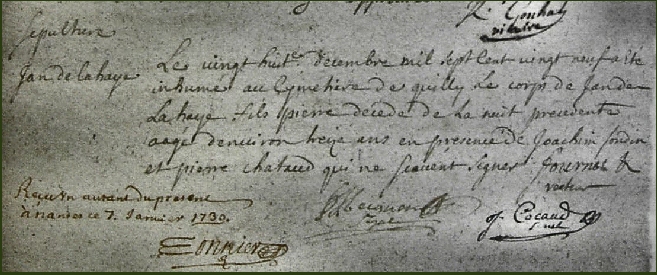 vicaire
Sepulture
Jan de la haye
Le vingt huit.e decembre mil sept cent vingt neuf a ete
inhumé au Cymetiere de quilly Le corps de Jan de
La haye fils pierre decede de La nuit precedente
aagé denviron treize ans en presence de Joachin
et pierre chataud qui ne scavent signer Journot
recteur
Receu autant du presene
a nantes ce 7. Janvier 1730.
Cocaud